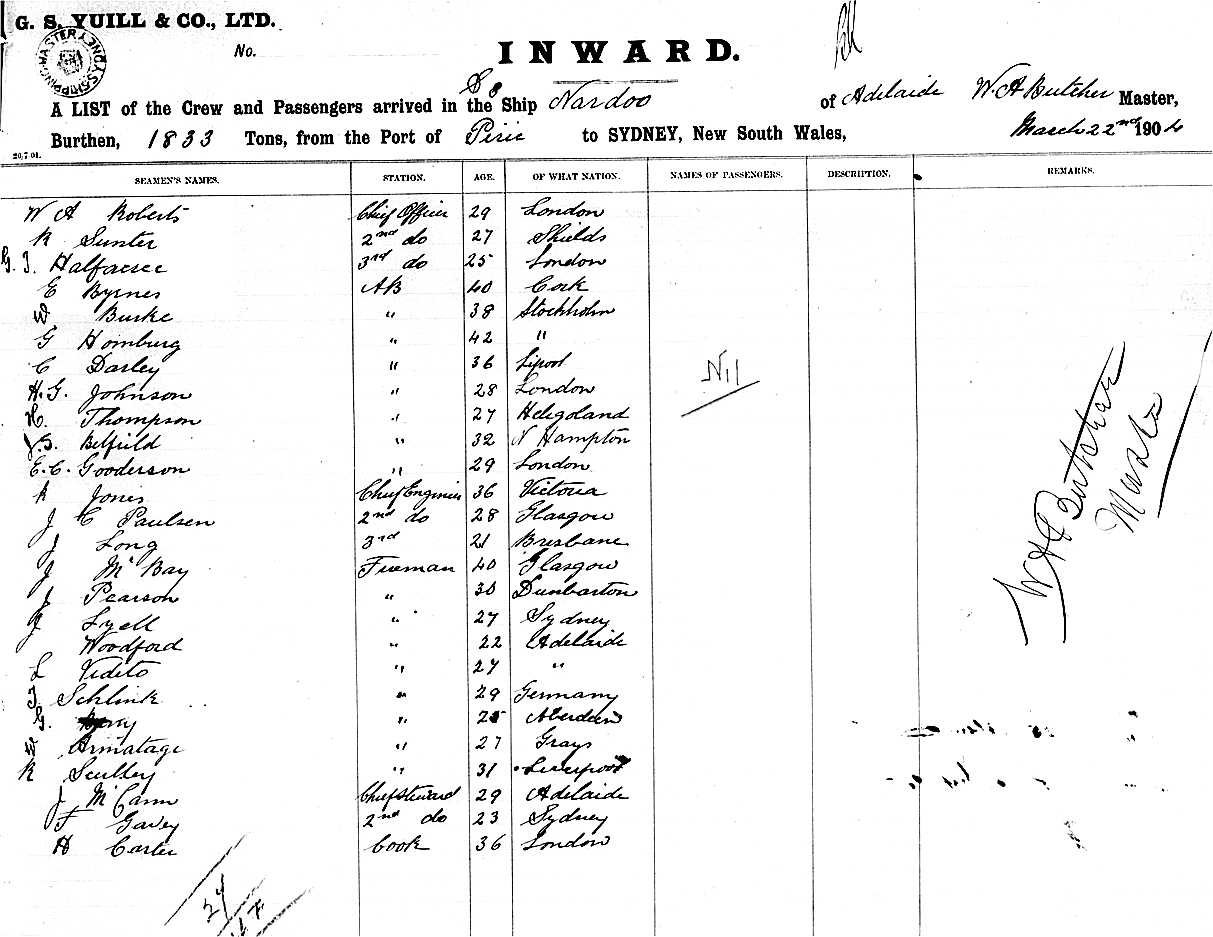 G. S. YUILL & CO., LTD.
SHIPPING MASTER SYDNEY
No.
INWARD.
A LIST of the Crew and Passengers arrived in the SS Ship Nardoo of Adelaide W A Butcher Master,
Burthen, 1833 Tons, from the Port of Pirie to SYDNEY, New South Wales, March 22nd 1904
20,7 01.
SEAMEN'S NAMES. STATION. AGE. OF WHAT NATION. NAMES OF PASSENGERS. DESCRIPTION. REMARKS.
W A Roberts Chief Officer 29 London
R Sunter 2nd do 27 Shields
G. J. Halfacree 3rd do 25 London
E Byrnes AB 40 Cork
W Burke " 38 Stockholm
G Homburg " 42 "
C Darley " 36 Lipool
H. G. Johnson " 28 London
H. Thompson " 27 Heligoland
J. G. Belfield " 32 N Hampton
E. C. Gooderson " 29 London
R Jones Chief Engineer 36 Victoria
J C Paulsen 2nd do 28 Glasgow
J Long 3rd 21 Brisbane
J Mc Bay Fireman 40 Glasgow
J Pearson " 30 Dunbarton
J Lyell " 27 Sydney
Woodford " 22 Adelaide
L Vidito " 27 "
F Schlink " 29 Germany
G. Berry " 25 Aberdeen
W Armatage " 27 Grays
R Scullery " 31 Liverpool
J Mc Cann Chief Steward 29 Adelaide
F Gavey 2nd do 23 Sydney
H Carter Cook 36 London
Nil
W A Butcher
Master
27